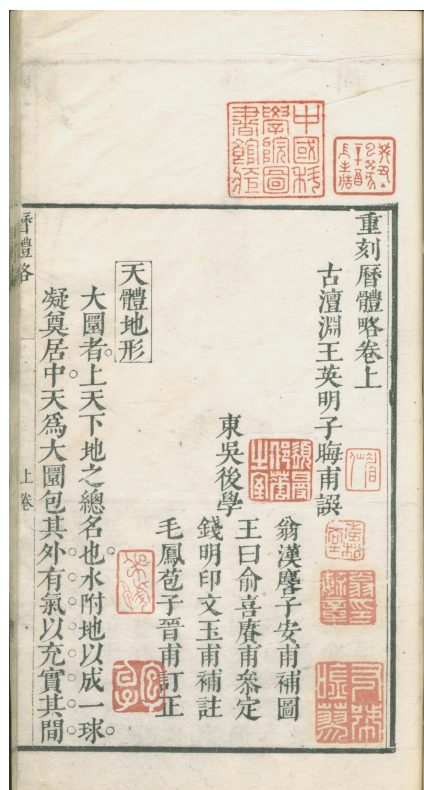 重刻曆體略卷上
古澶淵王英明子晦甫譔
東吳後學
翁漢麐子安甫補圖
王曰俞喜賡甫叅定
錢明印文玉甫補註
毛鳳苞子晉甫訂正
天體地形
大圜者上天下地之總名也水附地以成一球
凝奠居中天爲大圜包其外有氣以充實其間
曆體略
上卷
中國科
學院圖
書館藏